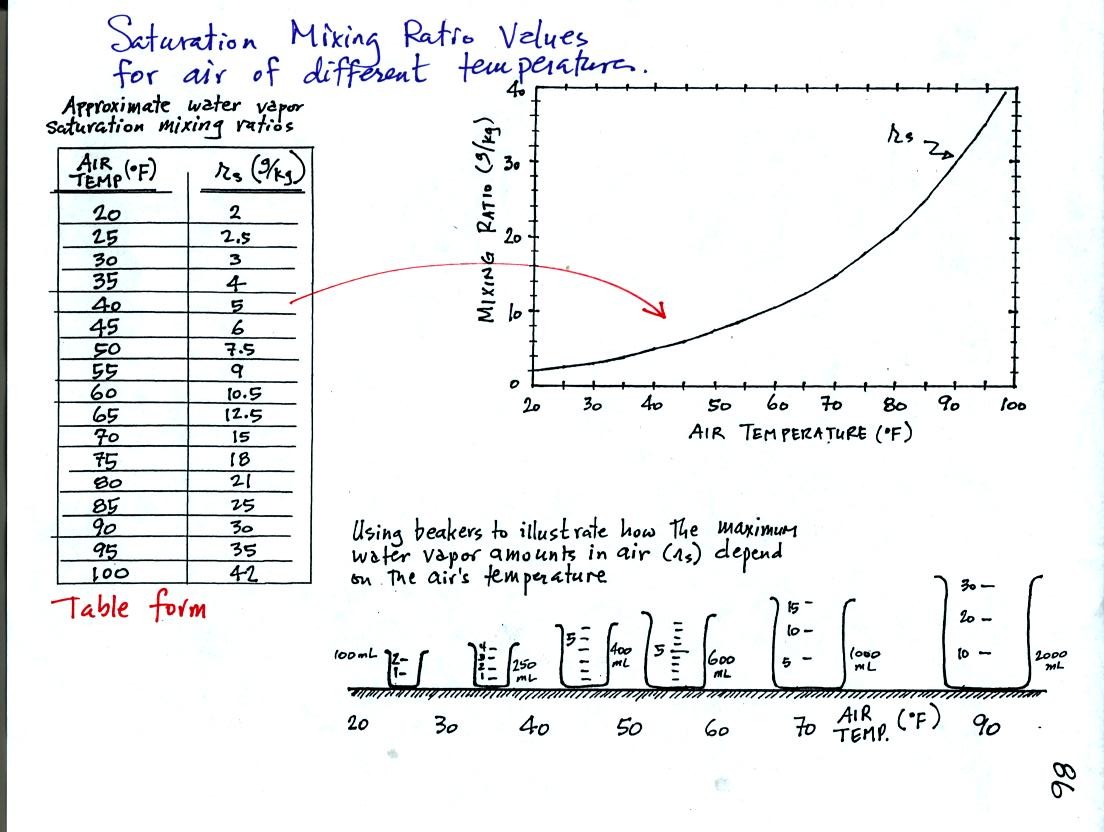 Saturation Mixing Ratio Values
for air of different temperatures.
Approximate water vapor
saturation mixing ratios
AIR TEMP (°F) rs (g/kg)
20 2
25 2.5
30 3
35 4
40 5
45 6
50 7.5
55 9
60 10.5
65 12.5
70 15
75 18
80 21
85 25
90 30
95 35
100 42
Table form
MIXING RATIO (g/kg)
40
30
20
10
0
rs
20 30 40 50 60 70 80 90 100
AIR TEMPERATURE (°F)
Using beakers to illustrate how the maximum
water vapor amounts in air (rs) depend
on the air's temperature
100 mL
2
1
4
3
2
1
250 mL
5
400 mL
5
600 mL
15
10
5
1000 mL
30
20
10
2000 mL
20 30 40 50 60 70 AIR TEMP. (°F) 90
86